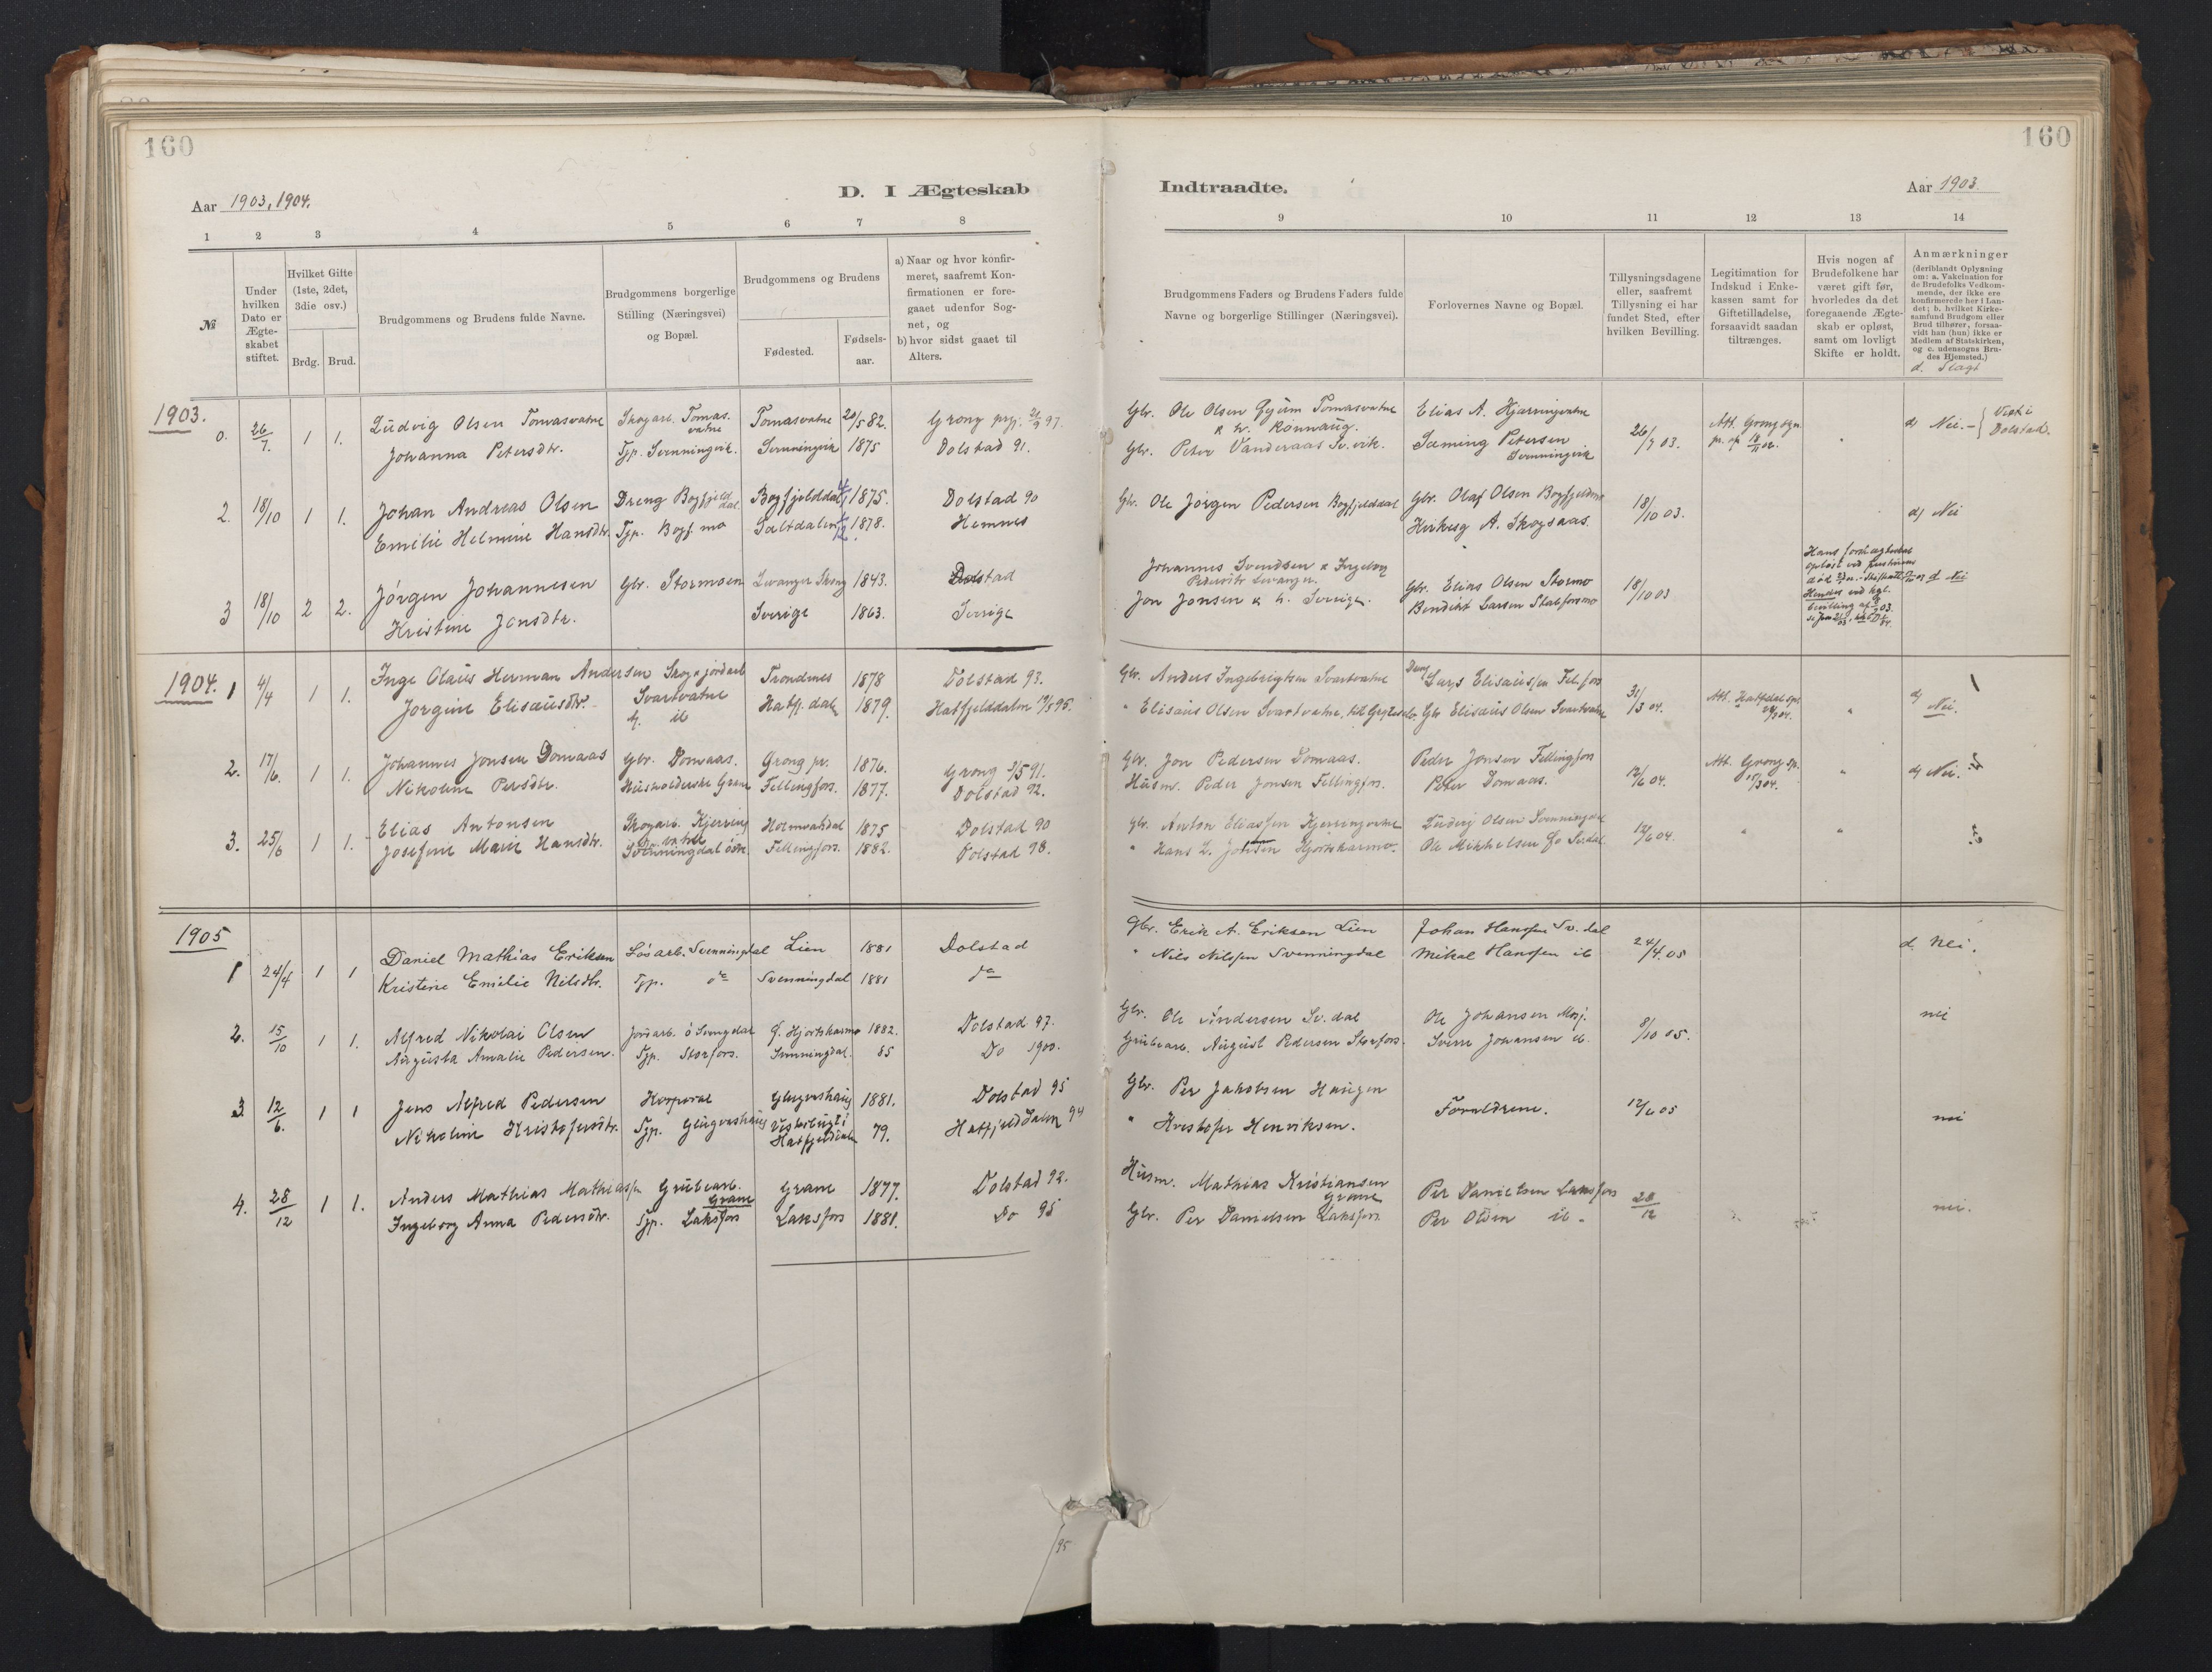 160
160
Aar 1903, 1904.
D. I Ægteskab
Indtraadte.
Aar 1903.
1 2 3 4 5 6 7 8
9 10 11 12 13 14
№
Under hvilken Dato er Ægteskabet stiftet.
Hvilket Gifte (1ste, 2det, 3die osv.)
Brdg. Brud.
Brudgommens og Brudens fulde Navne.
Brudgommens borgerlige Stilling (Næringsvei) og Bopæl.
Brudgommens og Brudens
Fødested.
Fødsels-aar.
a) Naar og hvor konfirmeret, saafremt Konfirmationen er foregaaet udenfor Sognet, og
b) hvor sidst gaaet til Alters.
Brudgommens Faders og Brudens Faders fulde Navne og borgerlige Stillinger (Næringsvei).
Forlovernes Navne og Bopæl.
Tillysningsdagene eller, saafremt Tillysning ei har fundet Sted, efter hvilken Bevilling.
Legitimation for Indskud i Enkekassen samt for Giftetilladelse, forsaavidt saadan tiltrænges.
Hvis nogen af Brudefolkene har været gift før, hvorledes da det foregaaende Ægteskab er opløst, samt om lovligt Skifte er holdt.
Anmærkninger
(deriblandt Oplysning om: a. Vakcination for de Brudefolks Vedkommende, der ikke ere konfirmerede her i Landet; b. hvilket Kirkesamfund Brudgom eller Brud tilhører, forsaavidt han (hun) ikke er Medlem af Statskirken, og c. udensogns Brudes Hjemsted.)
d. Slagt
1903.
0. 26/7. 1 1. Ludvig Olsen Tomasvatne Skogarb. Tomasvatne Tomasvatne 20/5 82. Grong 97. Gbr. Ole Olsen Tomasvatne Elias A. Kjerringvatne 26/7 03. d) Nei. Viet i Dolstad.
Johanna Petersdtr. Tjp. Svenningvik. Svenningvik 1875 Dolstad 91. Gbr. Peter Vanderaas Sv.vik. Sæming Petersen Svenningvik
2. 18/10 1 1. Johan Andreas Olsen Dreng Bogfjelddal Bogfjelddal 1875. Dolstad 90 Gbr. Ole Jørgen Pedersen Bogfjelddal Gbr. Olaf Olsen Bogfjeldmo 18/10 03. d) Nei
Emilie Helmine Hansdtr. Tjp. Bogf. mo Saltdalen 1878. Hemnes A. Skogsaas.
3 18/10 2 2. Jørgen Johannesen Gbr. Stormoen Levanger Skogn 1843. Dolstad Johannes Svendsen & Ingeborg Pedersdtr Levanger. Gbr. Elias Olsen Stormo 18/10 03 d Nei
Kristine Jonsdtr. Sverige 1863. Sverige Jon Jonsen & h. Sverige. Bendikt Larsen Stabforsmo
1904.
1 4/4 1 1. Inge Olaus Herman Andersen Skog & jordarb Svartvatne Trondenes 1878 Dolstad 93. Gbr. Anders Ingebrigtsen Svartvatne Lars Elisæussen Fel.fors 31/3 04. Att. Hatfdal d) Nei. 1
Jorgine Elisæusdtr. ib Hatfj.dalen 1879. Hatfjelddalen 95. " Elisæus Olsen Svartvatne Gbr Elisæus Olsen Svartvatne
2. 17/6. 1 1. Johannes Jonsen Domaas Gbr. Domaas. Grong pr. 1876. Grong 91. Gbr. Jon Pedersen Domaas. Peder Jonsen Fellingfors 12/6 04. Att. Grong sp. 15/3 04. " d) Nei. 2.
Nikoline Persdtr. Husholderske Grane Fellingfors. 1877. Dolstad 92. Husm. Peder Jonsen Fellingfors. Peter Domaas.
3. 25/6 1 1. Elias Antonsen Skogarb. Kjerringvatne Holmvasdal 1875 Dolstad 90 Gbr. Anton Eliassen Kjerringvatne Ludvig Olsen Svenningdal 12/6 04. " " 3.
Josefine Marie Hansdtr. Svenningdal østre. Fellingfors. 1882. Dolstad 98. " Hans L. Johnsen Hjortskarmo. Ole Mikkelsen Sv.dal
1905
1 24/4 1 1 Daniel Mathias Eriksen Løsarb. Svenningdal Lien 1881 Dolstad Gbr. Erik A. Eriksen Lien Johan Hanssen Sv.dal 24/4.05 d. Nei.
Kristine Emilie Nilsdtr. Tjp. do Svenningdal 1881 do " Nils Nilssen Svenningdal Mikal Hanssen ib
2. 15/10 1 1. Alfred Nikolai Olsen Jordarb. ø Svengdal Hjortskarmo 1882. Dolstad 97. Gbr. Ole Andersen Sv.dal Ole Johansen Mosj. 8/10 05. nei
Augusta Amalie Pedersen. Tjp. Storfors. Svenningdal. 85 Do 1900. Grubearb. August Pedersen Storfors. Sverre Johansen ib.
3 12/6. 1 1 Jens Alfred Pedersen Korporal Glugvashaug 1881. Dolstad 95 Gbr. Per Jakobsen Haugen Forældrene. 12/6 05 nei
Nikoline Kristofersdtr. Tjp. Glugvashaug Vesterbugt i Hatfjelddalen 79. Hatfjelddalen 94 " Kristofer Henriksen.
4. 28/12 1 1. Anders Mathias Mathiassen Grubearb. Grane Grane 1877. Dolstad 92. Husm. Mathias Kristiansen Grane Per Danielsen Laksfors 28/12 nei.
Ingeborg Anna Pedersdtr. Tjp. Laksfors Laksfors 1881. Do 95 Gbr. Per Danielsen Laksfors Per Olsen ib.
95